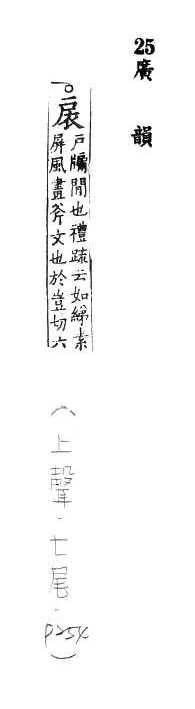 25廣韻
扆
戶牖閒也禮疏云如綈素
屏風畫斧文也於豈切六
(上聲．七尾．P254)